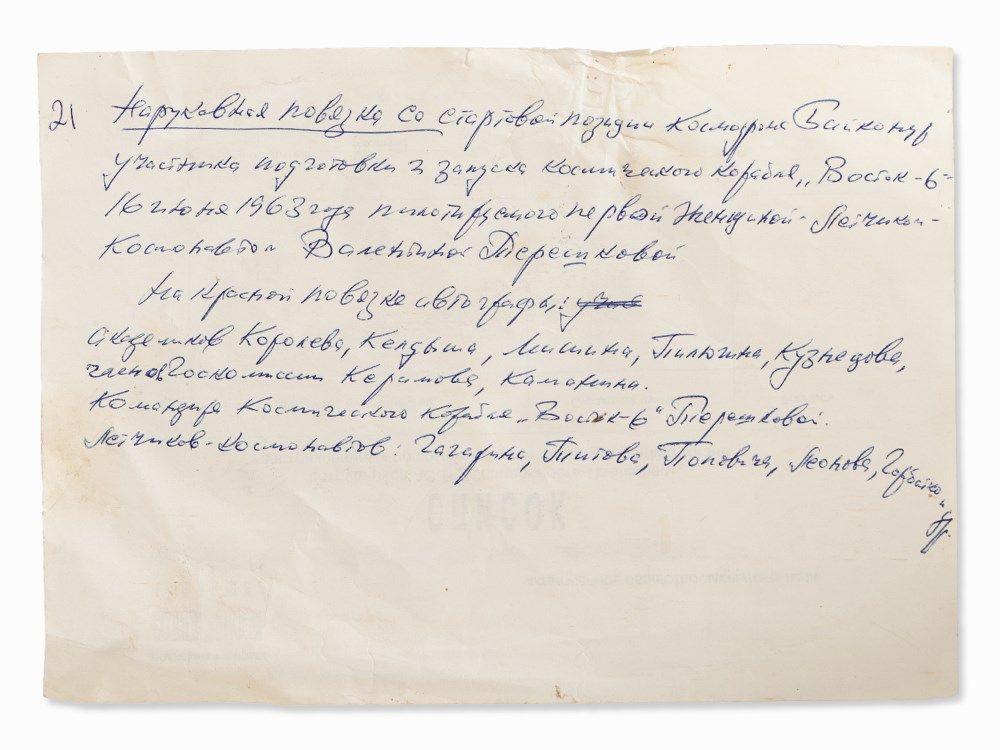 21 Нарукавная повязка со стартовой позиции Космодрома Байконур
участника подготовки и запуска космического корабля „Восток-6"
16 июня 1963 года пилотируемого первой женщиной-лётчиком-
космонавтом Валентиной Терешковой
На красной повязке автографы:
академиков Королева, Келдыша, Мишина, Пилюгина, Кузнецова,
членов Госкомиссии Керимова, Каманина.
Командира космического корабля „Восток-6" Терешковой.
Лётчиков-космонавтов: Гагарина, Титова, Поповича, Леонова, Горбатко и др.